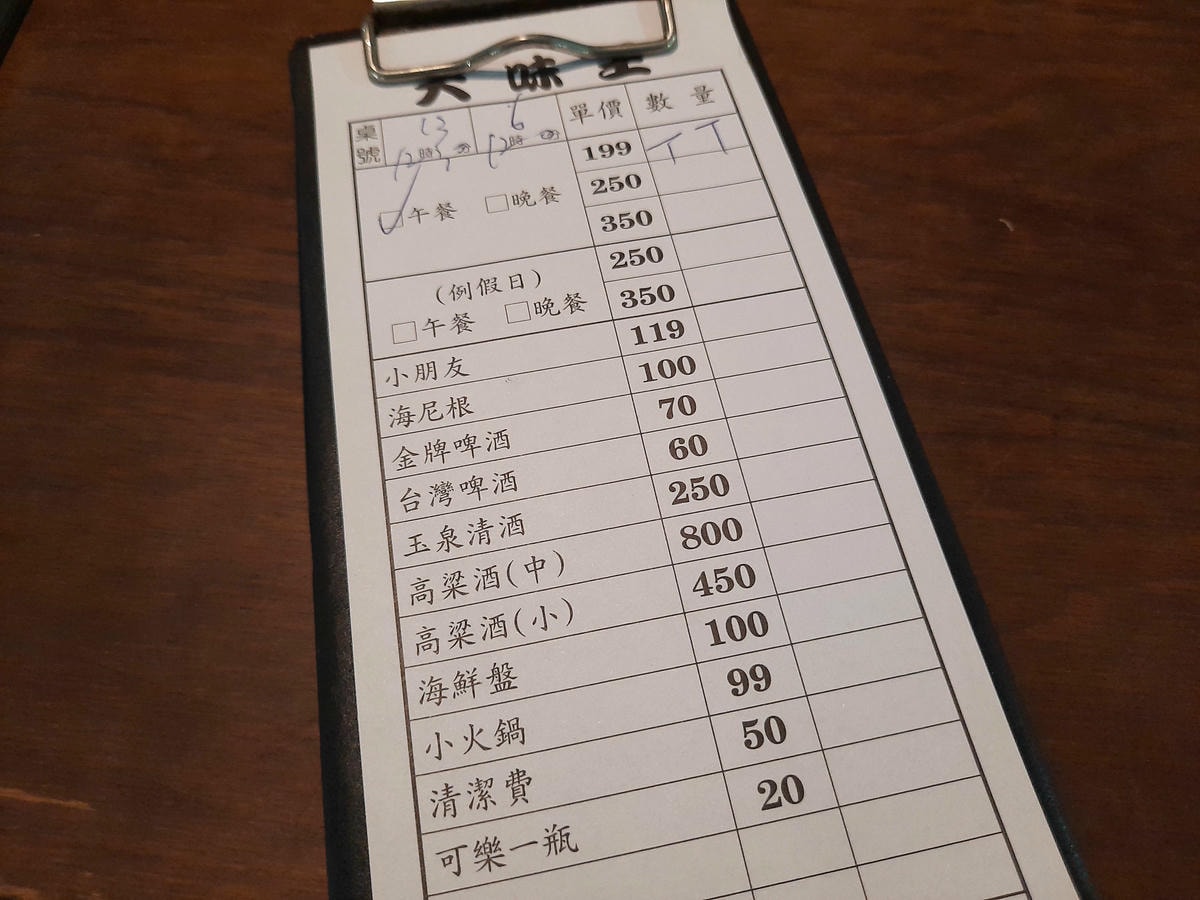 味
桌號 13 6 單價 數量
12時 分 12時 分 199 丅 丅
250
☑午餐 □晚餐 350
(例假日) 250
□午餐 □晚餐 350
小朋友 119
海尼根 100
金牌啤酒 70
台灣啤酒 60
玉泉清酒 250
高粱酒(中) 800
高粱酒(小) 450
海鮮盤 100
小火鍋 99
清潔費 50
可樂一瓶 20